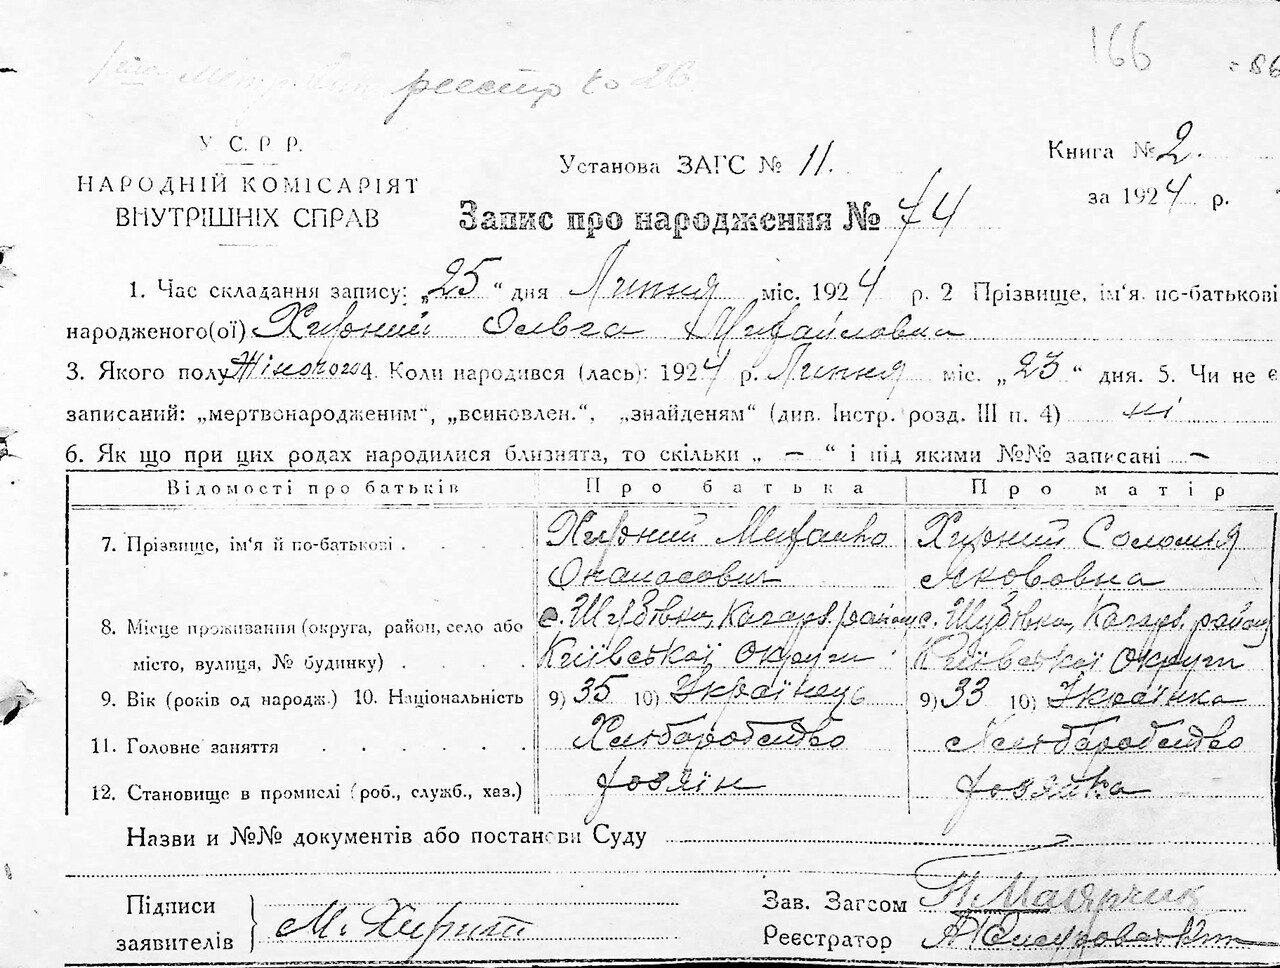 166
86
реестр
У С. Р Р.
НАРОДНІЙ КОМІСАРІЯТ
ВНУТРІШНІХ СПРАВ
Установа ЗАГС № 11.
Книга № 2.
за 1924 р.
Запис про народження № 74
1. Час складання запису: „25“ дня Липня міс. 1924 р. 2 Прізвище, ім'я. по-батькові
народженого(ої) Хирний Ольга Михайловна
3. Якого полу Жіночого 4. Коли народився (лась): 1924 р. Липня міс. „23“ дня. 5. Чи не є
записаний: „мертвонародженим“, „всиновлен.“, „знайденям“ (див. Інстр. розд. III п. 4) ні
6. Як що при цих родах народилися близнята, то скільки „ — “ і під якими №№ записані —
Відомості про батьків Про батька Про матір
7. Прізвище, ім'я й по-батькові . . . . Хирний Михайло Хирний Соломія
Опанасович Якововна
8. Місце проживання (округа, район, село або с. Шубівка, Кагарл. району с. Шубівка, Кагарл. району
місто, вулиця, № будинку) . . . . Київської округи Київської округи
9. Вік (років од народж.) 10. Національність 9) 35 10) Українець 9) 33 10) Українка
11. Головне заняття . . . . . . Хліборобство Хліборобство
12. Становище в промислі (роб., служб., хаз.) хозяїн хозяйка
Назви и №№ документів або постанови Суду
Підписи
заявителів
М. Хирний
Зав. Загсом
Реєстратор